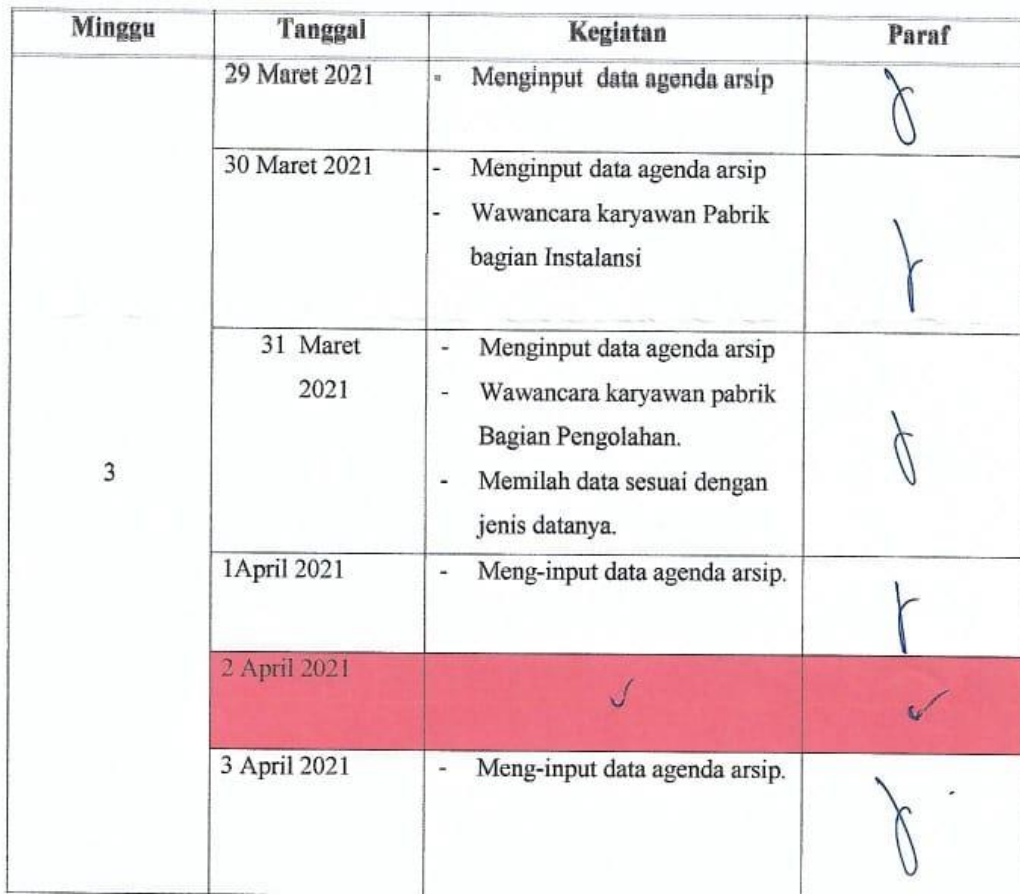 Minggu Tanggal Kegiatan Paraf
3
29 Maret 2021
- Menginput data agenda arsip
30 Maret 2021
- Menginput data agenda arsip
- Wawancara karyawan Pabrik
bagian Instalansi
31 Maret
2021
- Menginput data agenda arsip
- Wawancara karyawan pabrik
Bagian Pengolahan.
- Memilah data sesuai dengan
jenis datanya.
1April 2021
- Meng-input data agenda arsip.
2 April 2021
✓ ✓
3 April 2021
- Meng-input data agenda arsip.